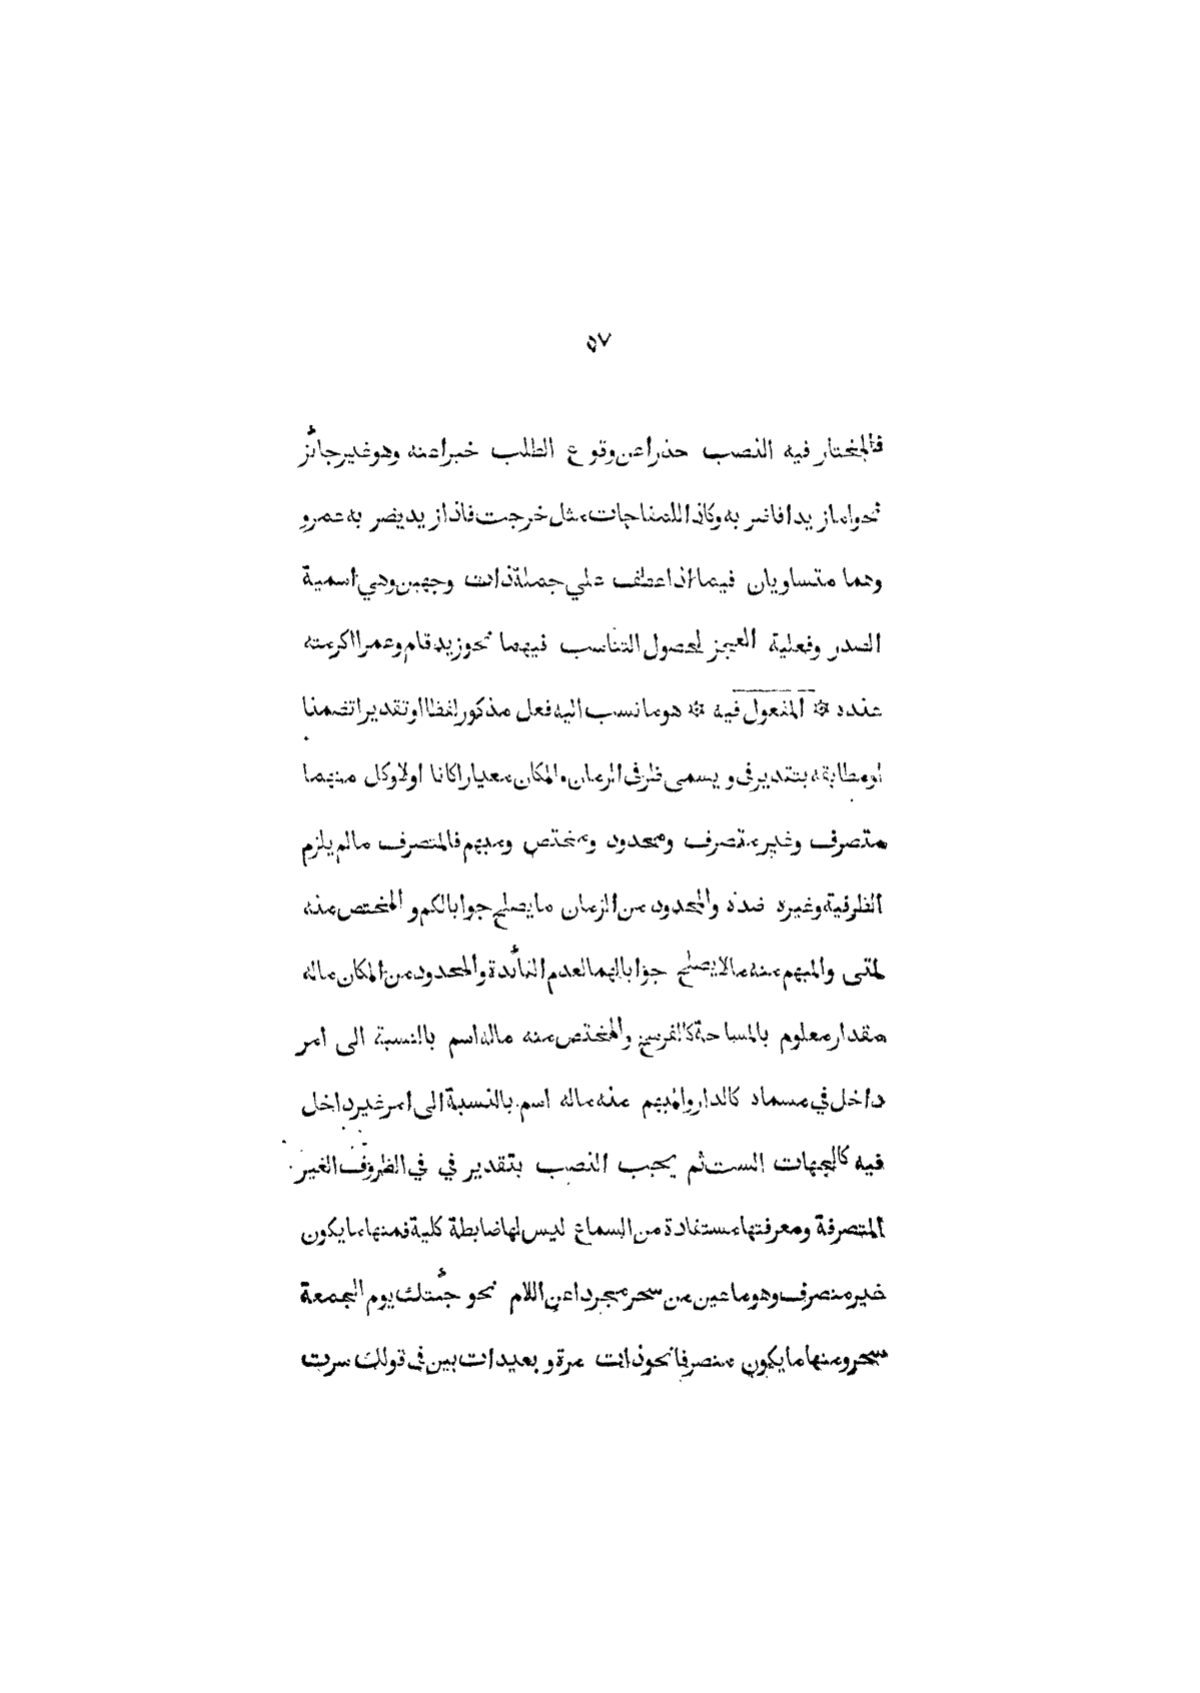 ٥٧
فالمختار فيه النصب حذرا عن وقوع الطلب خبرا عنه وهو غير جائز
نحو اما زيدا فاضر به وكاذا للمفاجات مثل خرجت فاذا زيد يضر به عمرو
وهما متساويان فيما اذا عطف علي جملة ذات وجهين وهي اسمية
الصدر وفعلية العجز لحصول التناسب فيهما نحو زيد قام وعمرا اكرمته
عنده * المفعول فيه * هو ما نسب اليه فعل مذكور لفظا او تقديرا تضمنا
او مطابقة بتقدير فى و يسمى ظرفى الزمان والمكان معيارا كانا اولا وكل منهما
متصرف وغير متصرف ومحدود ومختص ومبهم فالمتصرف ما لم يلزم
الظرفية وغيره ضده والمحدود من الزمان ما يصلح جوابا لكم و المختص منه
لمتى والمبهم منه ما لا يصلح جوابا لهما لعدم الفائدة والمحدود من المكان ماله
مقدار معلوم بالمساحة كالفرسخ والمختص منه ماله اسم بالنسبة الى امر
داخل في مسماه كالدار والمبهم منه ماله اسم بالنسبة الى امر غير داخل
فيه كالجهات الست ثم يجب النصب بتقدير في في الظروف الغير
المتصرفة ومعرفتها مستفادة من السماع ليس لها ضابطة كلية فمنها ما يكون
غير منصرف وهو ما عين من سحر مجردا عن اللام نحو جئتك يوم الجمعة
سحر ومنها ما يكون منصرفا نحو ذات مرة و بعيدات بين فى قولك سرت